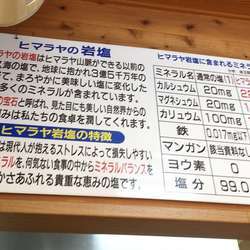 ヒマラヤの岩塩
ヤの岩塩は、ヒマラヤ山脈ができる以前の
海の塩で、地球に抱かれ3億5千万年の
て、まろやかに美味しい天然の塩です。
多くのミネラルが含まれています。
の宝石と呼ばれ、見た目にも美しい自然界からの
みは私たちの食卓を潤してくれます。
ヒマラヤ岩塩の特徴
は現代人が抱えるストレスによって損失しやすい
ラルを、何気ない食事の中からミネラルバランスを
かさあふれる貴重な恵みの塩です。
ヒマラヤ岩塩に含まれるミネ
ミネラル名 通常の塩(1
カルシュウム 20mg
マグネシュウム 20mg
カリュウム 100mg
鉄 0.017mg
マンガン 該当資料な
ヨウ素 0
塩分 99.0